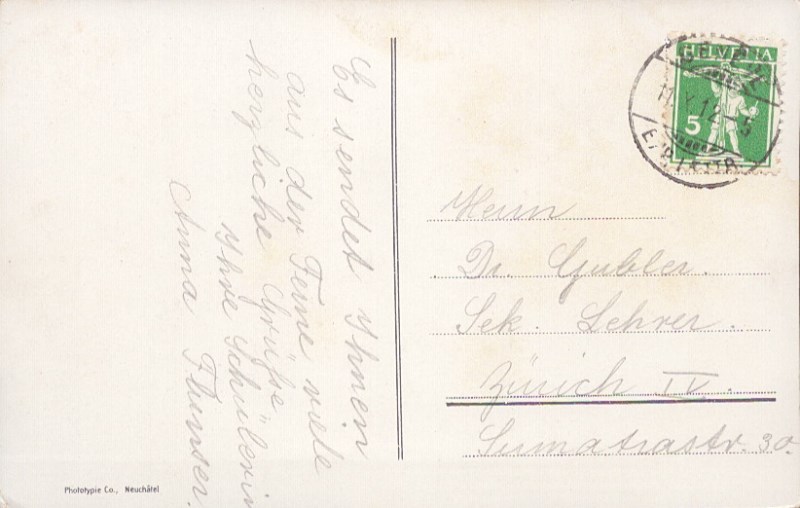 Es sendet Ihnen
aus der Ferne viele
herzliche Grüße
Ihre Schülerin
Anna
HELVETIA
5
GENÈVE
11.X.12.-5
EXP. LETTR.
Herrn
Dr. Gubler.
Sek. Lehrer.
Zürich IV.
Sumatrastr. 30.
Phototypie Co., Neuchâtel